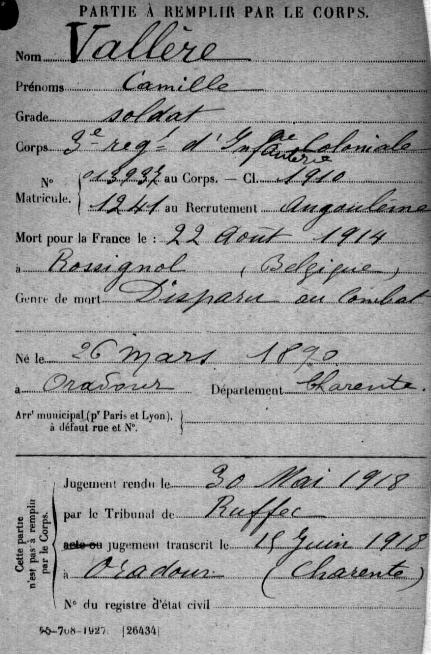 PARTIE À REMPLIR PAR LE CORPS.
Nom Vallère
Prénoms Camille
Grade soldat
Corps 3e regt d'Infanterie Coloniale
No 013937 au Corps. — Cl. 1910
Matricule. 1241 au Recrutement Angoulême
Mort pour la France le : 22 Août 1914
à Rossignol (Belgique)
Genre de mort Disparu au Combat
Né le 26 mars 1890
à Oradour Département Charente.
Arrt municipal (pr Paris et Lyon),
à défaut rue et No.
Cette partie
n'est pas à remplir
par le Corps.
Jugement rendu le 30 Mai 1918
par le Tribunal de Ruffec
acte ou jugement transcrit le 15 Juin 1918
à Oradour (Charente)
No du registre d'état civil
-708-1927. [26434]